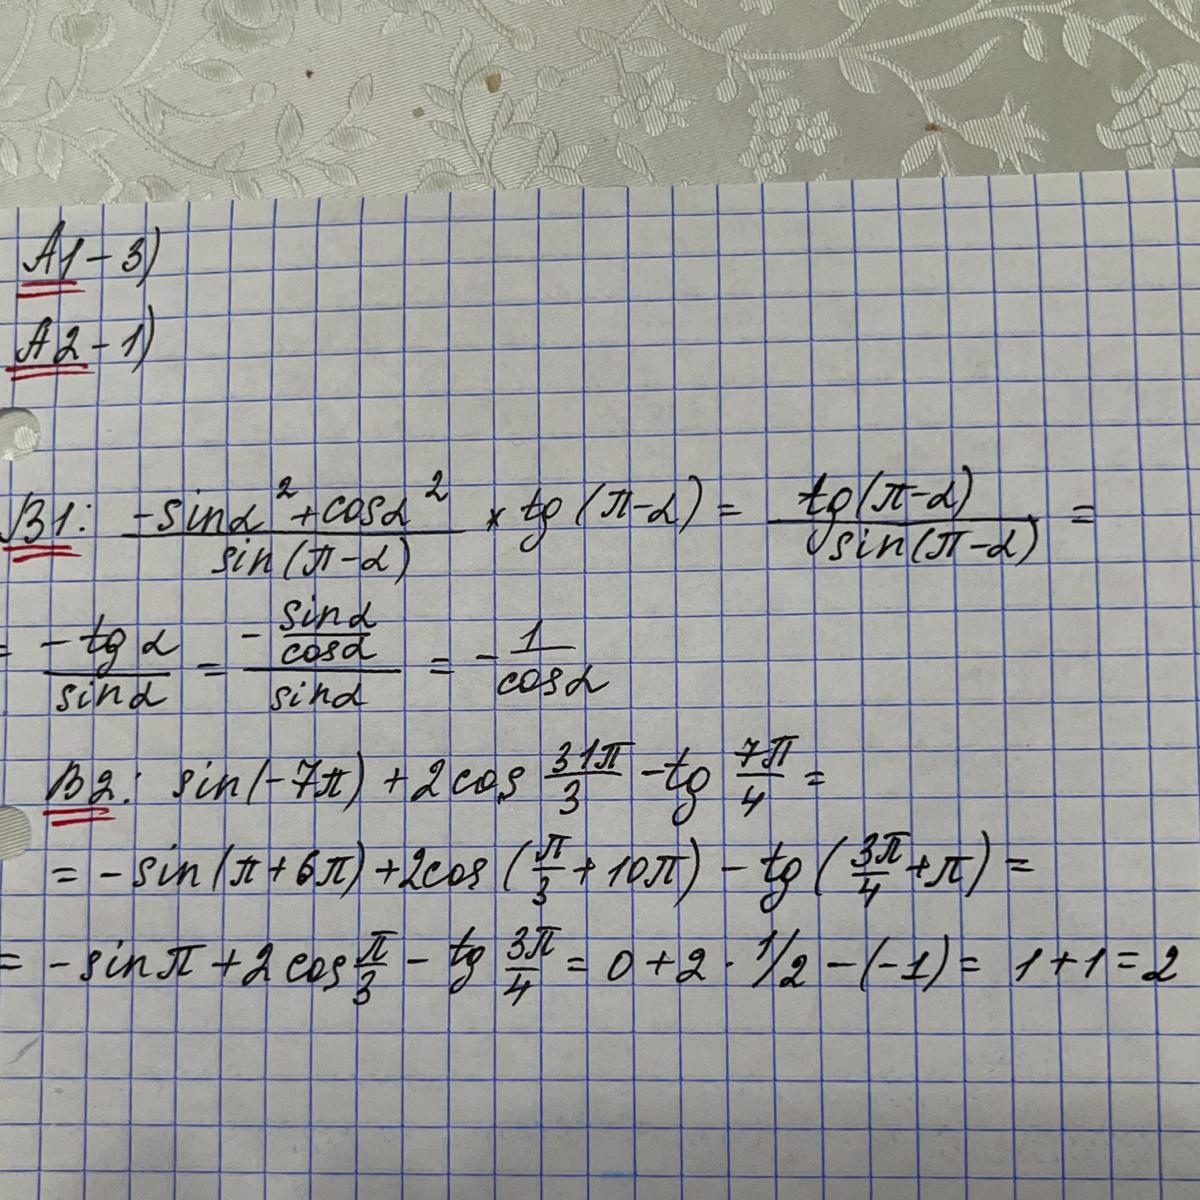 А1 - 3)
А2 - 1)
В1: (-sinα² + cosα²)/(sin(π-α)) × tg(π-α) = (tg(π-α))/(sin(π-α)) =
= (-tgα)/(sinα) = (-(sinα/cosα))/(sinα) = -1/(cosα)
В2: sin(-7π) + 2cos 31π/3 - tg 7π/4 =
= -sin(π+6π) + 2cos(π/3 + 10π) - tg(3π/4 + π) =
= -sinπ + 2cos π/3 - tg 3π/4 = 0 + 2 · 1/2 - (-1) = 1+1=2